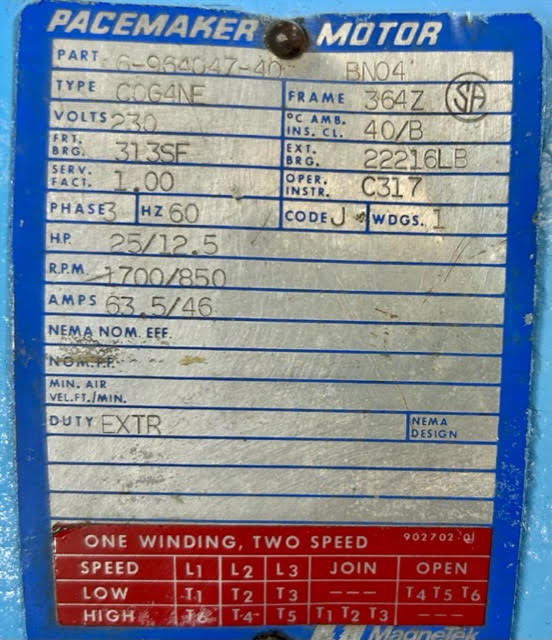 PACEMAKER MOTOR
PART 6-964047-40 BN04
TYPE COG4NE FRAME 364Z SA
VOLTS 230 °C AMB. INS. CL. 40/B
FRT. BRG. 313SF EXT. BRG. 22216LB
SERV. FACT. 1.00 OPER. INSTR. C317
PHASE 3 HZ 60 CODE J WDGS. 1
H.P. 25/12.5
R.P.M. 1700/850
AMPS 63.5/46
NEMA NOM. EFF.
NOM. P.F.
MIN. AIR VEL. FT./MIN.
DUTY EXTR NEMA DESIGN
ONE WINDING, TWO SPEED 902702-01
SPEED L1 L2 L3 JOIN OPEN
LOW T1 T2 T3 --- T4 T5 T6
HIGH T6 T4 T5 T1 T2 T3 ---